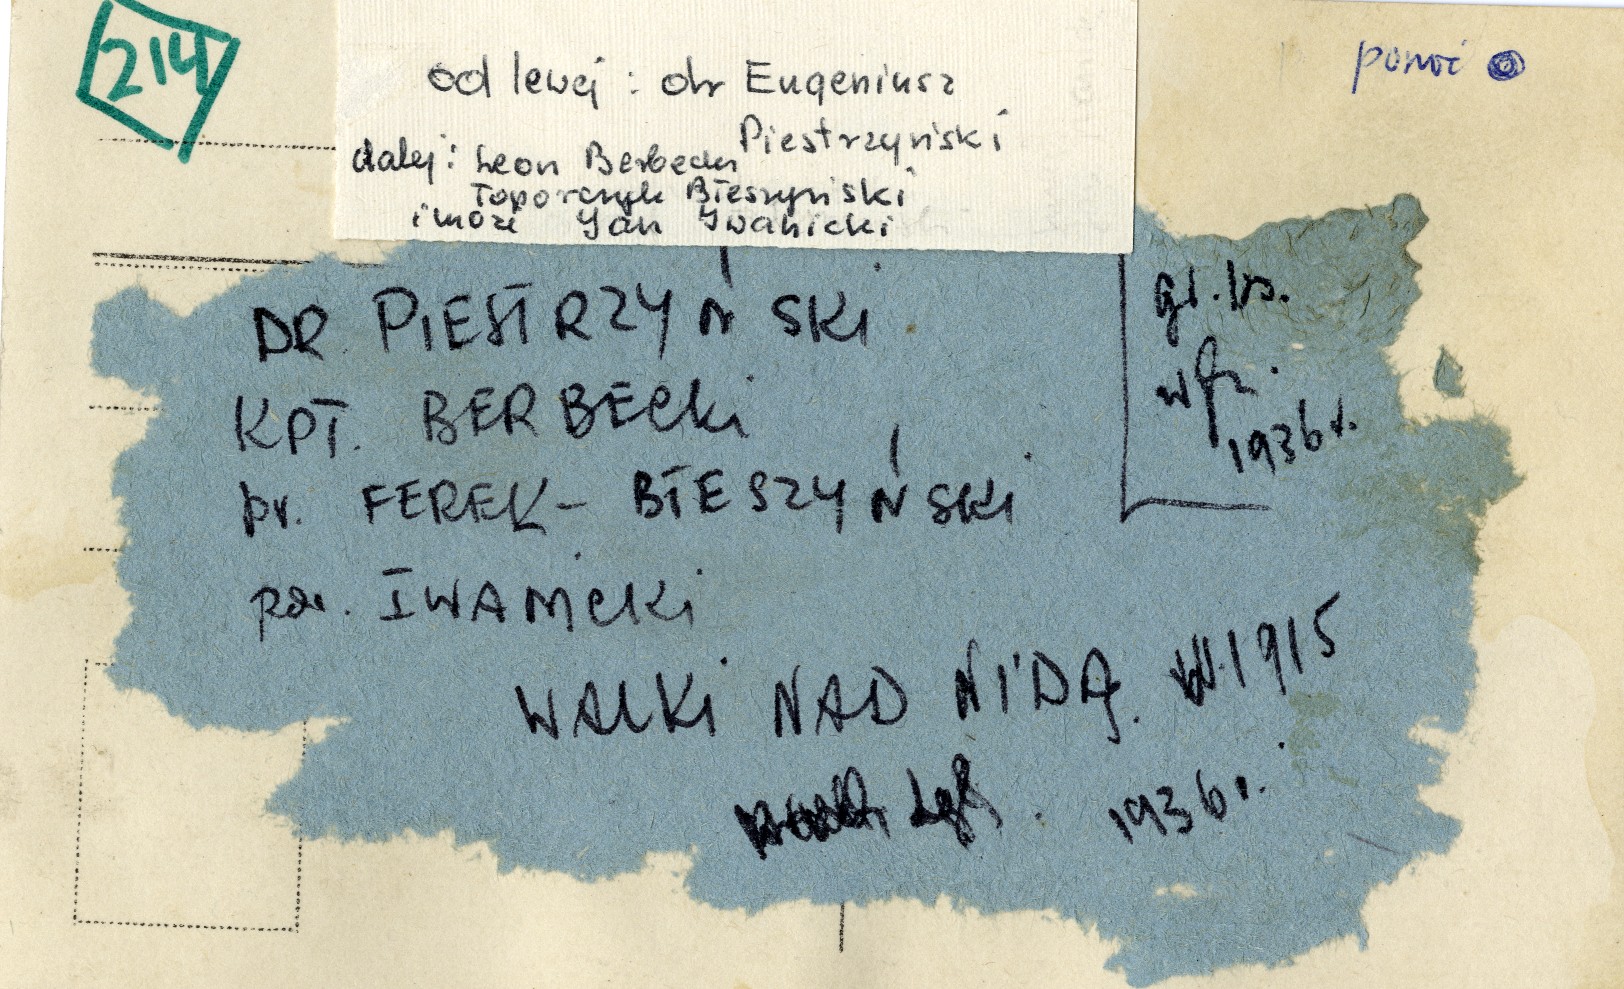 214
od lewej : dr Eugeniusz
Piestrzyński
dalej : Leon Berbecki
Toporczyk Błeszyński
i może Jan Iwanicki
DR PIESTRZYŃSKI
KPT. BERBECKI
FEREK – BŁESZYŃSKI
por. IWANICKI
WALKI NAD NIDĄ. W 1915
1936 r.
1936 r.